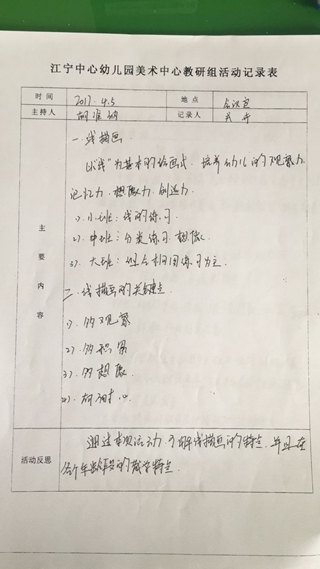 江宁中心幼儿园美术中心教研组活动记录表
时间 2017.4.5 地点 会议室
主持人 记录人
主要内容
一、线描画
以“线”为基本的绘画点，培养幼儿的观察力
记忆力、想象力、创造力.
1) 小班：线的练习.
2) 中班：分类练习、想像.
3) 大班：练习为主.
二、线描画的关键点
1) 多观察
2) 多积累
3) 多想象
4) 有耐心
活动反思
通过本次活动 了解线描画的特点，并且在
各个年龄段的教学特点